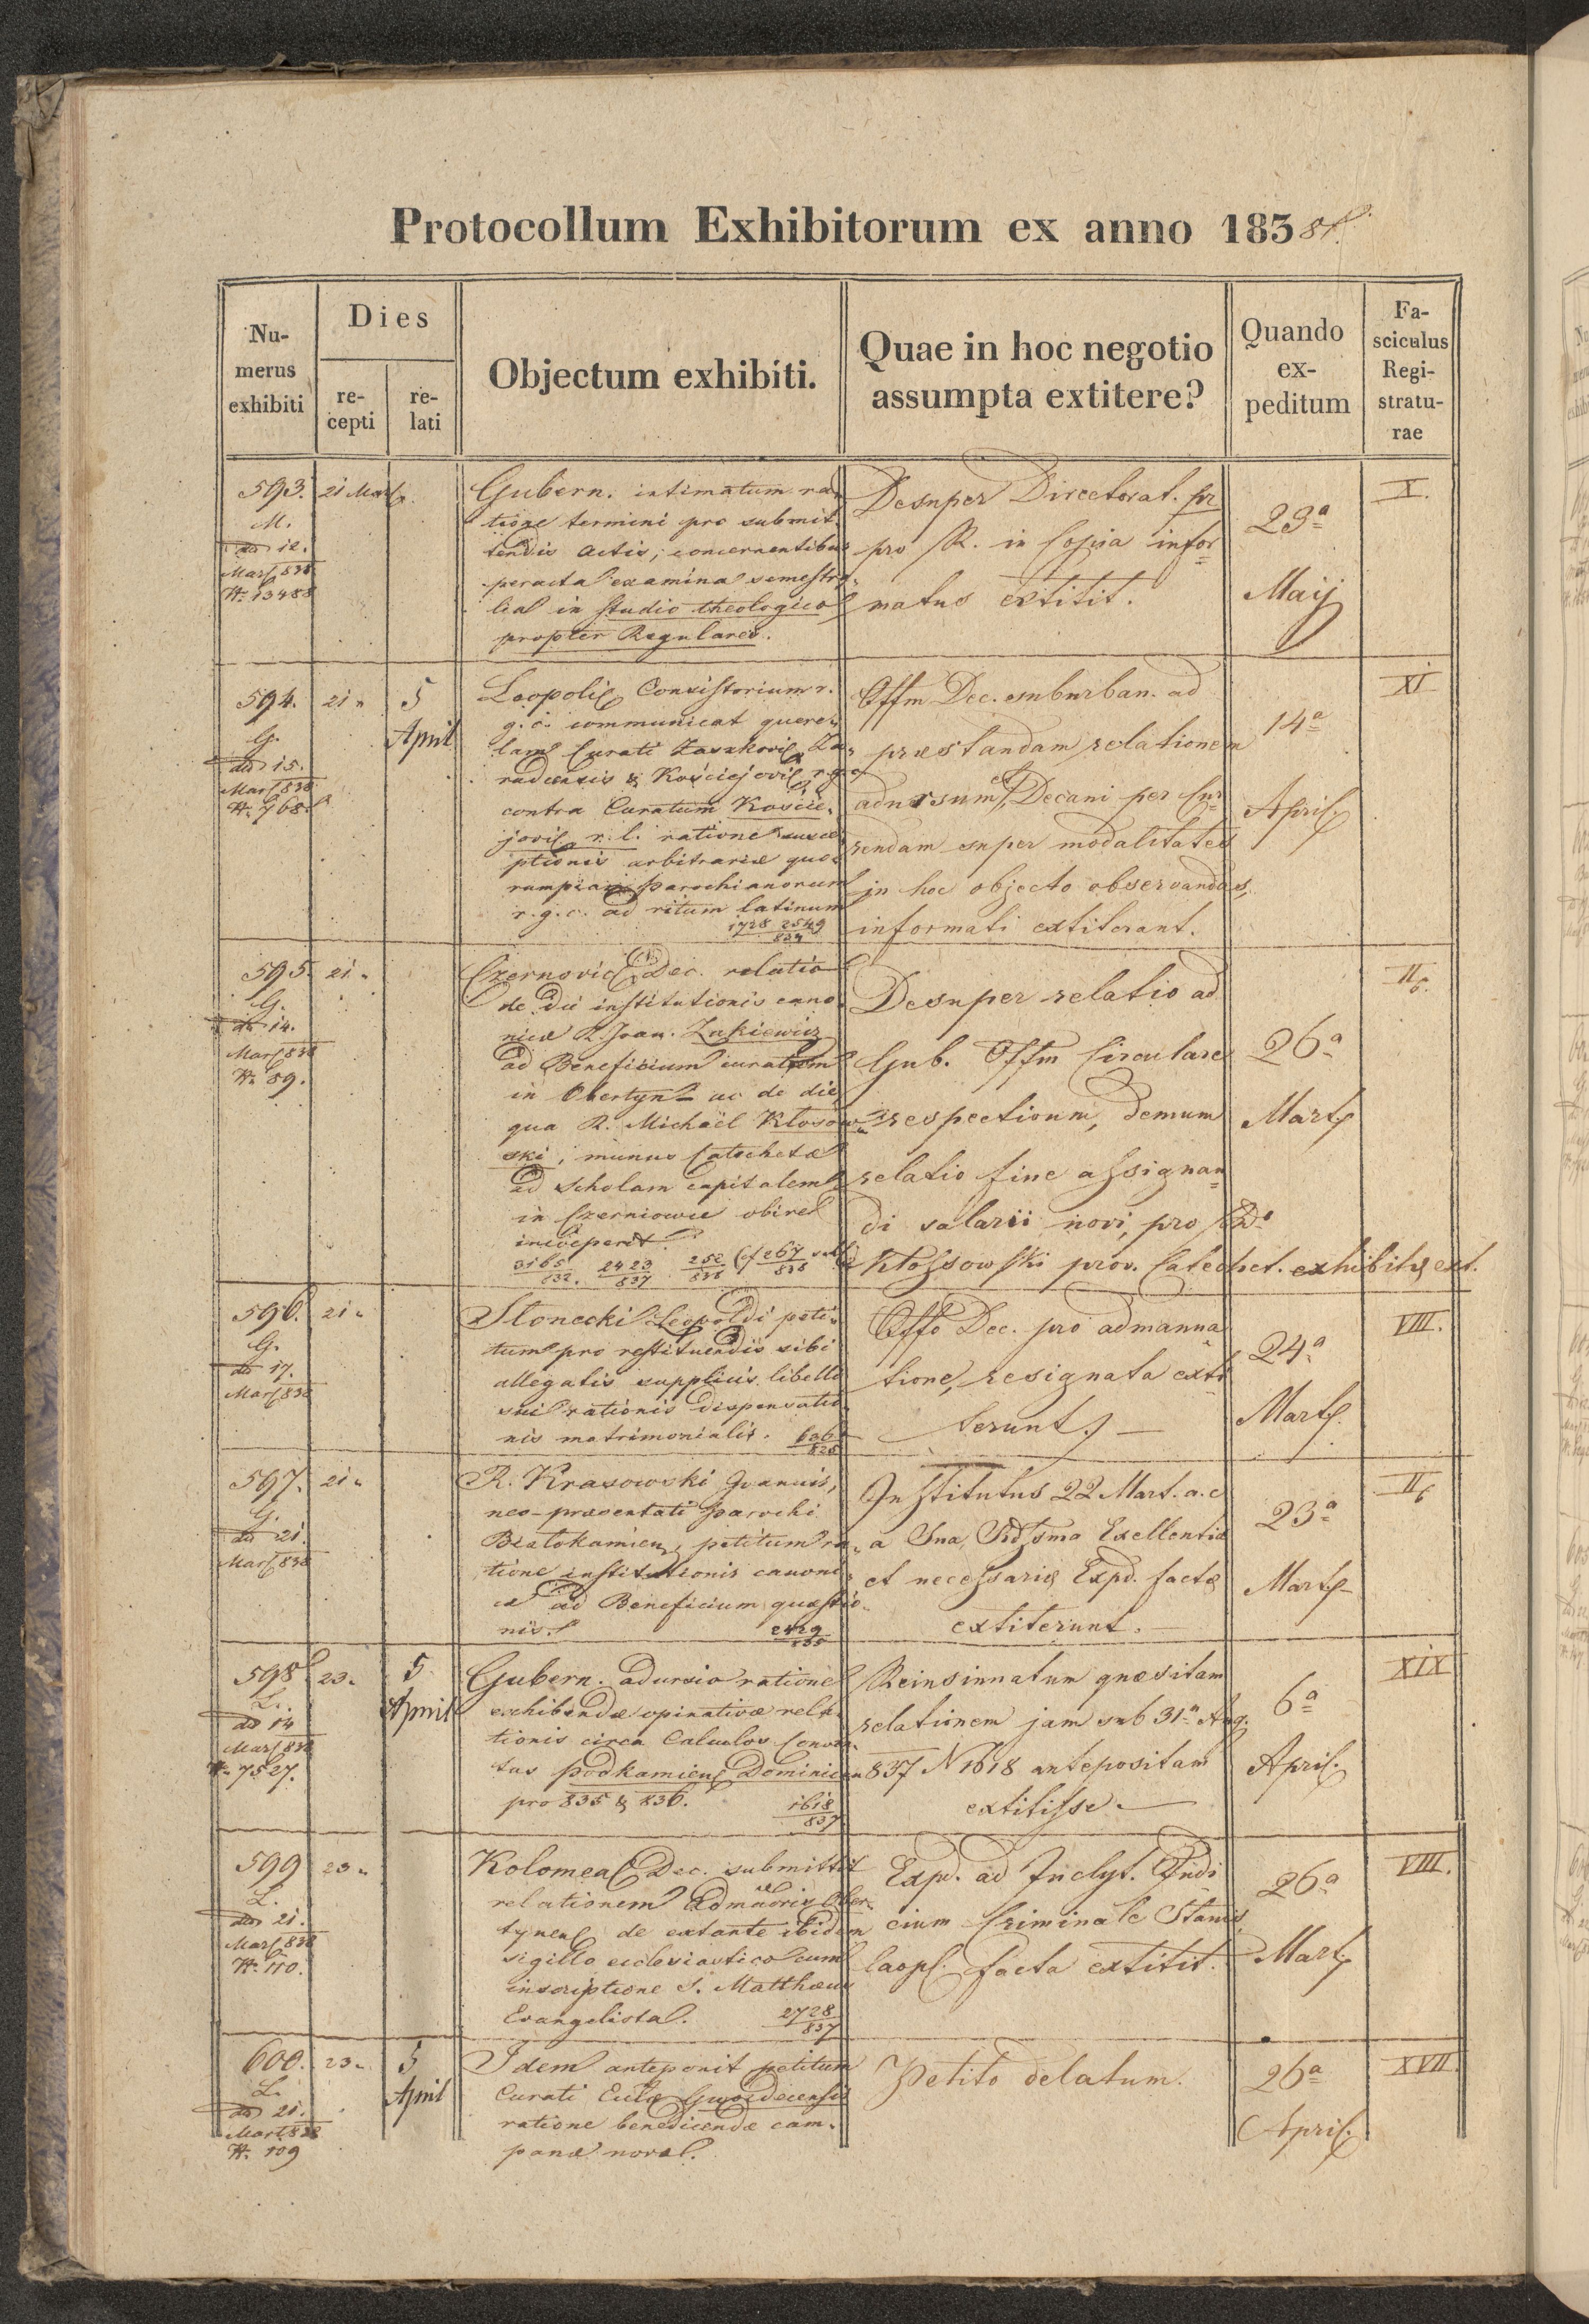 Protocollum Exhibitorum ex anno 183 8.
Nu-
merus
exhibiti
Dies
re-
cepti
re-
lati
Objectum exhibiti.
Quae in hoc negotio
assumpta extitere?
Quando
ex-
peditum
Fa-
sciculus
Regi-
stratu-
rae
593.
M.
dd 12.
Mart 838
N. 13488
21 Mart
Gubern. intimatum ra-
tione termini pro submit-
tendis actis, concernentibus
peracta examina semestra-
lia in studio theologico
propter Regulares.
Desuper Directorat.
pro R. in Copia infor
matus extitit.
23a
Maij
X.
594.
G.
dd 15.
Mart 838
N. 768.
21 "
5
April
Leopoli Consistorium r.
g. c. communicat quere-
lam Curati
& r. g. c.
contra Curatum Koscie-
jovi r. l. ratione susce-
ptionis arbitrariæ quo-
rumpiam parochianorum
r. g. c. ad ritum latinum
1728 2549
834
Offm Dec. suburban. ad
præstandam relationem
adversum, et Decani per Cur
rendam super modalitates
in hoc objecto observandas,
informati extiterant.
14a
April
XI
595.
G.
dd 14.
Mart 838
N. 89.
21 "
Czernovic Dec. relatio
de die institutionis cano-
nicæ R. Joan. Zukiewicz
ad Beneficium curatum
in Obertyn ac de die,
qua R. Michaël Klosow-
ski, munus Catechetæ
ad scholam capitalem
in Czerniowce obire
inceperit.
3165 2423 252 cf 267
832. 837 838 838
Desuper relatio ad
Gub. Offm Circulare
respectivum, demum
relatio fine assignan
di salarii novi, pro RD.
Klossowski prov. Catechet. exhibita ext.
26a
Mart
II
596.
G.
dd 17.
Mart 838
21 "
Slonecki Leopoldi peti-
tum pro restituendis sibi
allegatis supplicis libelli
sui rationis dispensatio-
nis matrimonialis. 606
828
Offo Dec. pro admanua
tione, resignata exti
terunt. —
24a
Mart
VIII.
597.
G.
dd 21.
Mart 838
21 "
R. Krasowski Joannis,
neo-præsentati parochi
Bialokamien, petitum ra-
tione institutionis canoni-
cæ ad Beneficium quæstio-
nis.
2429
835
Institutus 22 Mart. a. c
a Sua Excellentia
et necessariæ Expd. factæ
extiterunt. —
23a
Mart
II
598
L.
dd 14
Mart 838
N. 7527.
23 "
5
April
Gubern. adursio ratione
exhibendæ opinativæ rela-
tionis circa Calculos Conven-
tus podkamien Dominican
pro 835 & 836.
1618
837
Reinsinuatum quæsitam
relationem jam sub 31a Aug.
837 N 1618 antepositam
extitisse. —
6a
April.
XIX
599
L.
dd 21.
Mart 838
N. 110.
23 "
Kolomea Dec. submittit
relationem Ober-
tynen de extante ibidem
sigillo ecclesiastico cum
inscriptione S. Matthæus
Evangelista. 2728
837
Expd. ad Inclyt. Judi
cium Criminale Stanis
laop. facta extitit.
26a
Mart
VIII.
600.
L.
dd 21.
Mart 838
N. 109
23 "
5
April
Idem anteponit petitum
Curati Gwozdecensis
ratione benedicendæ cam-
panæ novæ.
Petito delatum.
26a
April.
XVII.